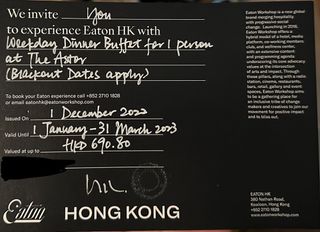 We invite You
to experience Eaton HK with
Weekday Dinner Buffet for 1 person
at The Astor
(Blackout Dates apply)
To book your Eaton experience call +852 2710 1828
or email eatonhk@eatonworkshop.com
Issued On 1 December 2022
Valid Until 1 January - 31 March 2023
Valued at up to HKD 690.80
Eaton HONG KONG
Eaton Workshop is a new global
brand merging hospitality
with progressive social
change. Launching in 2018,
Eaton Workshop offers a
hybrid model of a hotel, media
platform, co-working members
club, and wellness center,
with an extensive content
and programming agenda
underscoring its core advocacy
values at the intersection
of arts and impact. Through
these pillars, along with a radio
station, cinema, restaurants,
bars, retail, gallery and event
spaces, Eaton Workshop aims
to be a gathering place for
an inclusive tribe of change
makers and creatives to join our
movement for positive impact
and to bliss out.
EATON HK
380 Nathan Road,
Kowloon, Hong Kong
+852 2782 1818
www.eatonworkshop.com